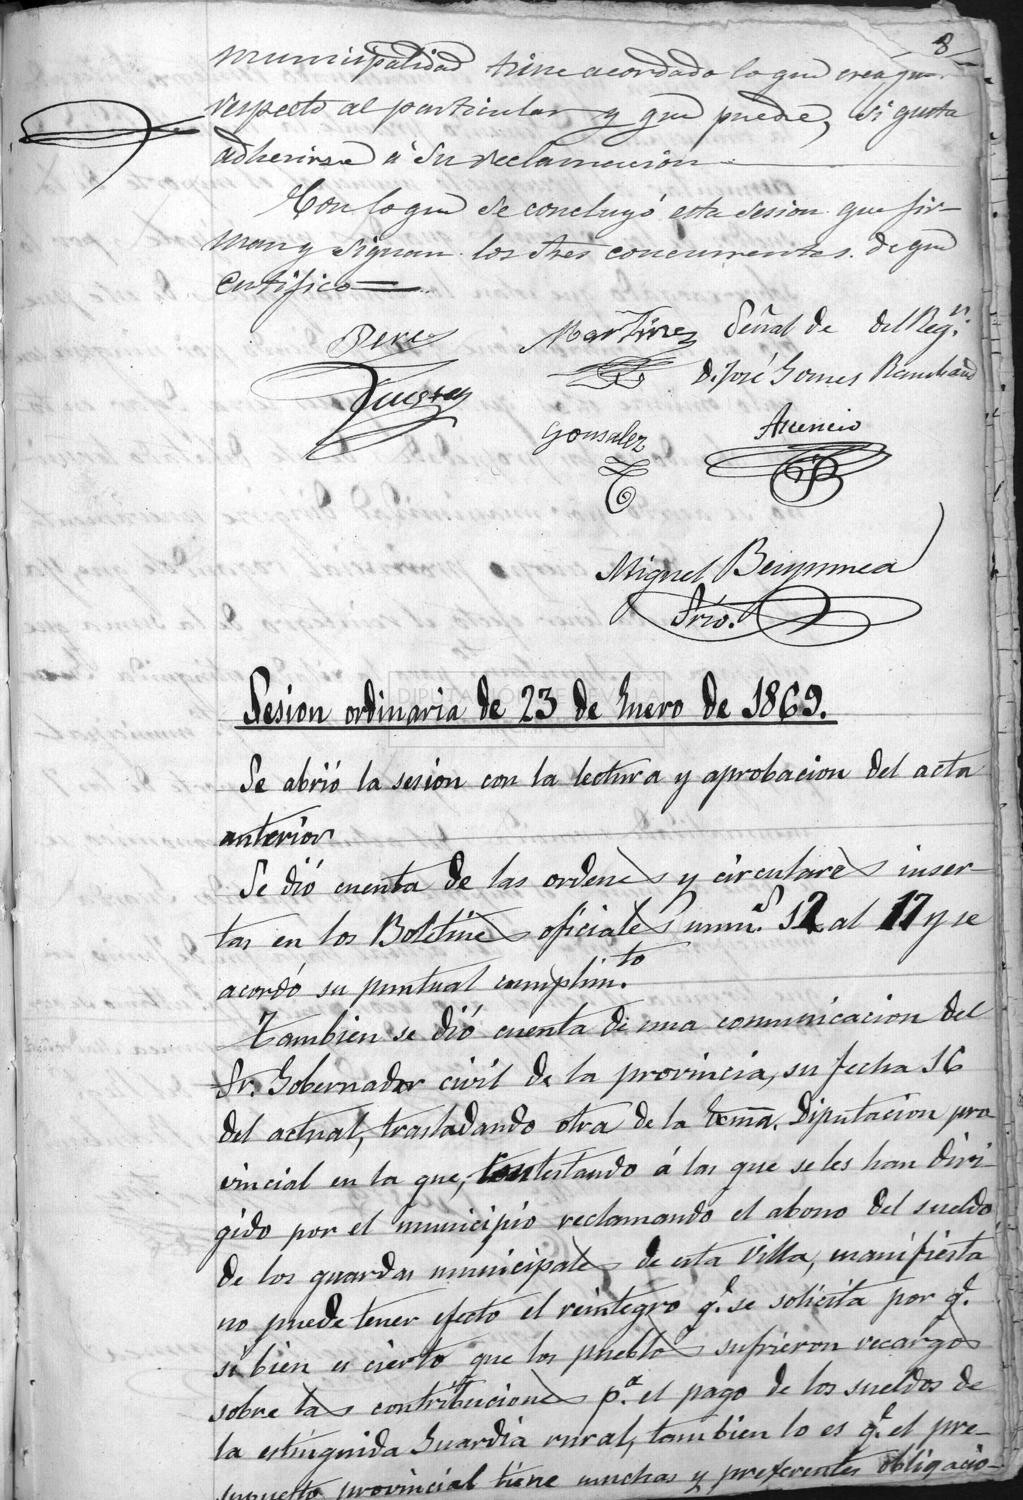 8
municipalidad tiene acordado lo que crea
respecto al particular y que puede, si gusta
adherirse á su reclamacion
Con lo que se concluyó esta sesion que fir-
man y signan los tres concurrentes de que
certifico
Perez
Martinez
Señal de del Reg.n
D. José Gomes
Gonsalez
Asencio
Miguel
Srio.
DIPUTACIÓN DE SEVILLA
Sesion ordinaria de 23 de Enero de 1869.
Se abrió la sesion con la lectura y aprobacion del acta
anterior
Se dió cuenta de las ordenes y circulares inser-
tas en los Boletines oficiales num.s 12 al 17 y se
acordó su puntual cumplim.to
Tambien se dió cuenta de una comunicacion del
Sr. Gobernador civil de la provincia, su fecha 16
del actual, trasladando otra de la Exma. Diputacion pro
vincial en la que, contestando á las que se les han diri-
gido por el municipio reclamando el abono del sueldo
de los guardas municipales de esta Villa, manifiesta
no puede tener efecto el reintegro q.e se solicita por q.e
si bien es cierto que los pueblos sufrieron recargos
sobre las contribuciones p.a el pago de los sueldos de
la estinguida Guardia rural, tambien lo es q.e el pre-
supuesto provincial tiene muchas y preferentes obligacio-